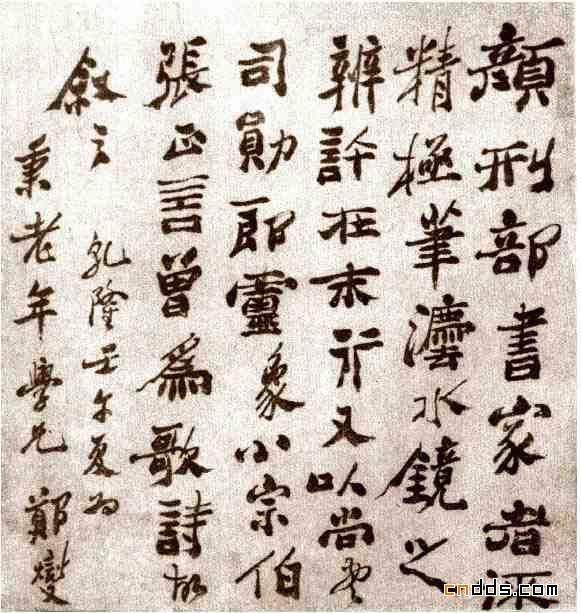 顏刑部書家者
精極筆灋水鏡之
辨許在末行又以尚書
司勛郎靈象小宗伯
張正言曾爲歌詩故
敘之 乾隆壬午夏為
秉老年學兄 鄭燮
cndds.com